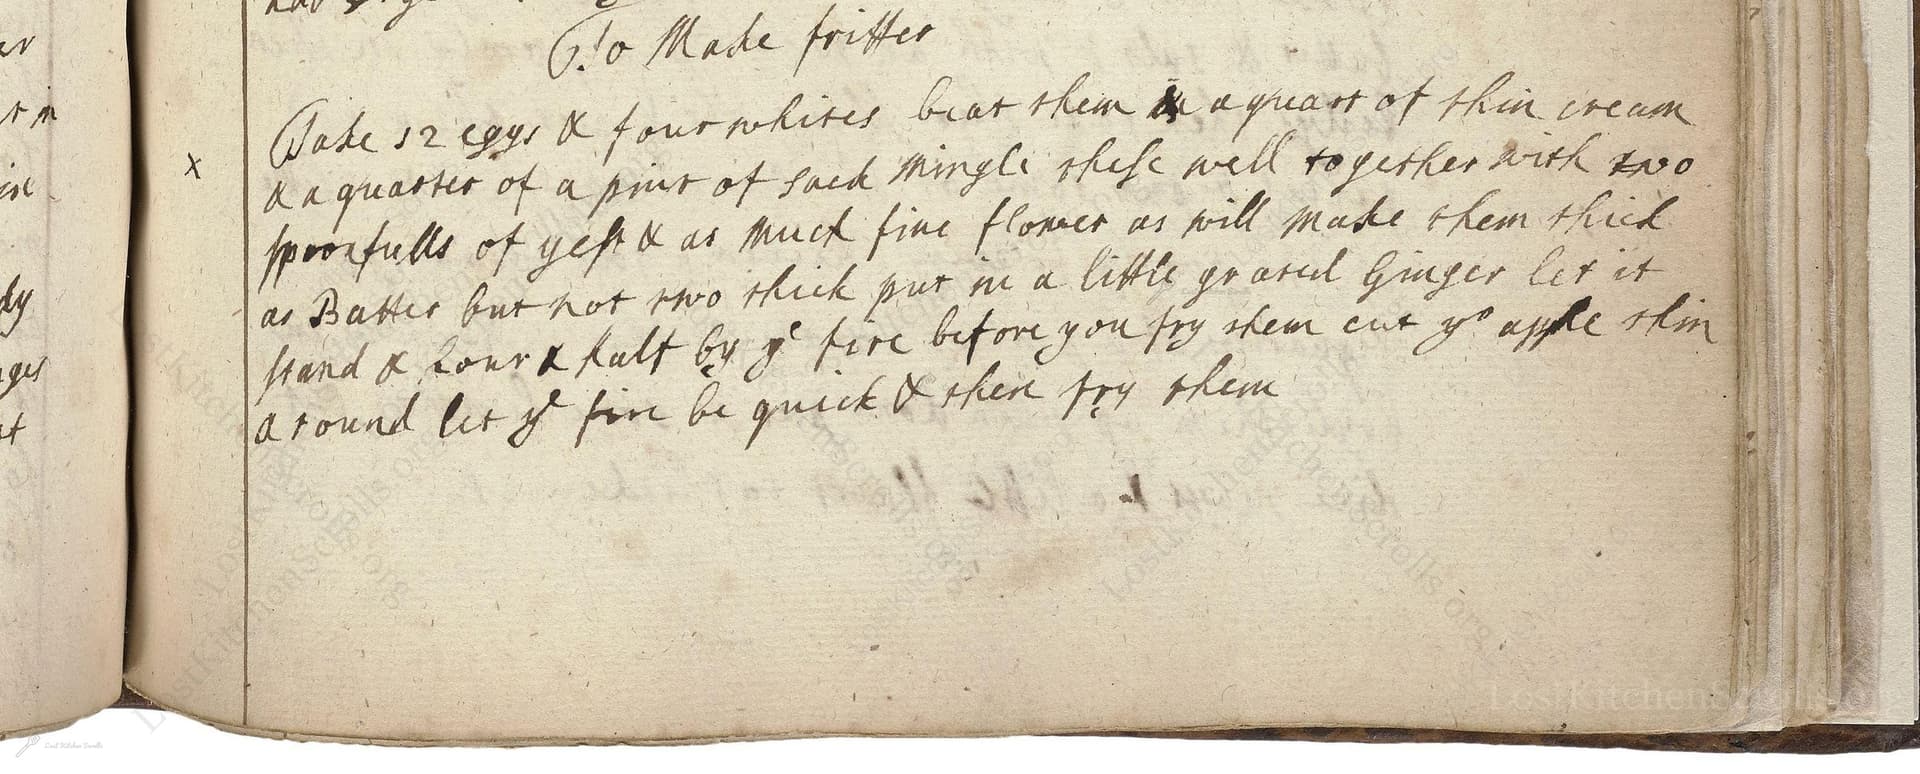 To Make fritter
Take 12 eggs & four whites beat them in a quart of thin cream
& a quarter of a pint of sack Mingle these well together with two
spoonfulls of yest & as Much fine flower as will Make them thick
as Batter but not two thick put in a little grated Ginger let it
stand & hour & halt by ye fire before you fry them cut ye apple thin
a round let ye fire be quick & then fry them
x
ar
in
dy
ges
LostKitchenScrolls.org
Lost Kitchen Scrolls